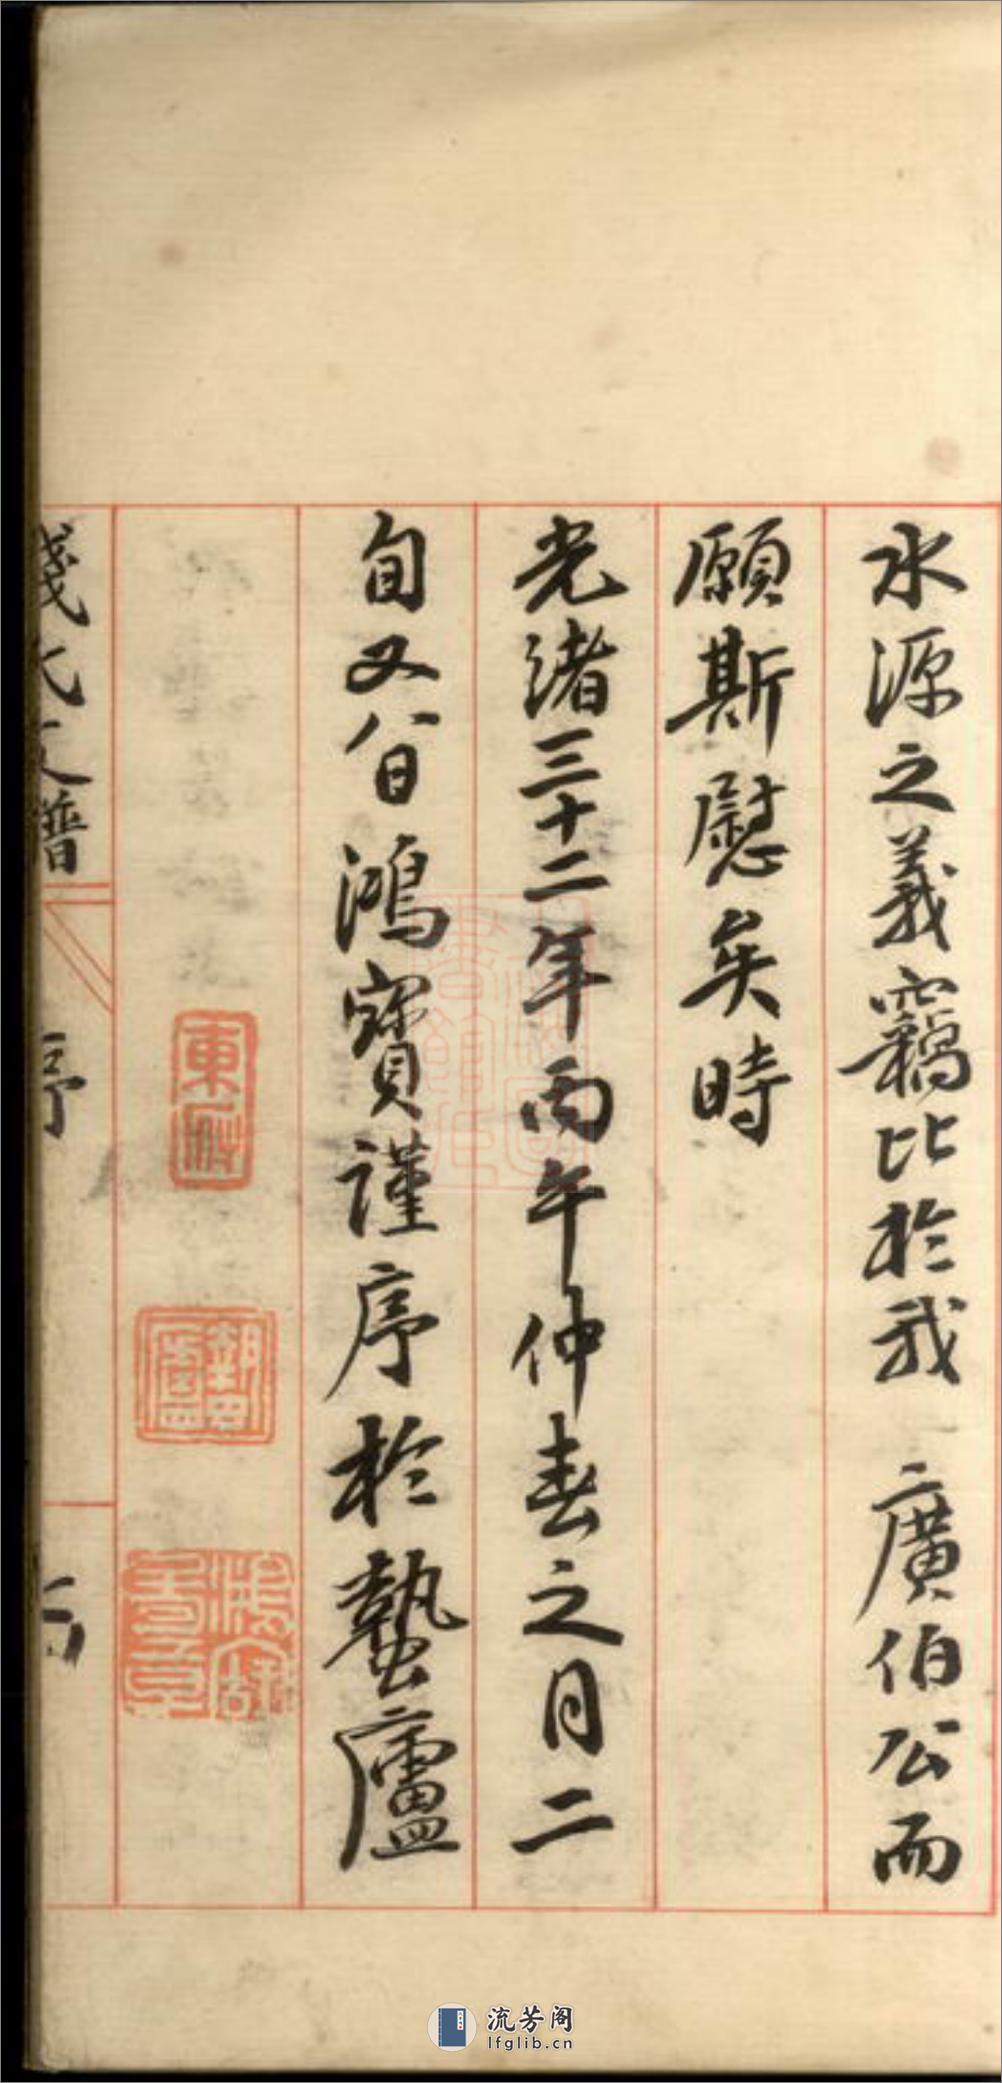 水源之義竊比於我 廣伯公而
願斯慰矣時
光緒三十二年丙午仲春之月二
旬又八日鴻寶謹序於蟄廬
錢氏文譜
序
東
流芳阁
lfglib.cn